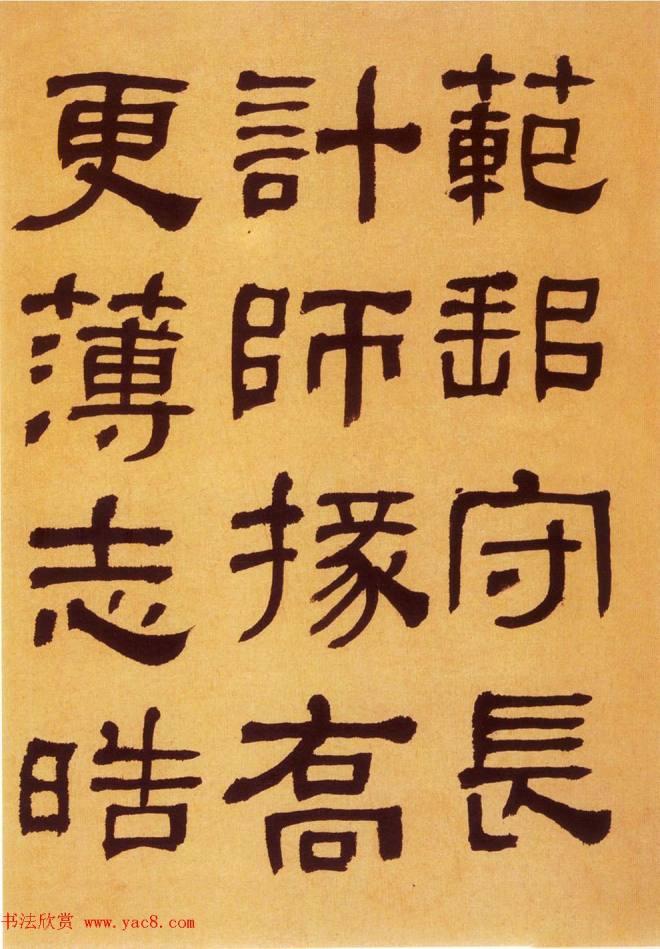 範邽守長
計師掾高
更薄志皓
书法欣赏 www.yac8.com